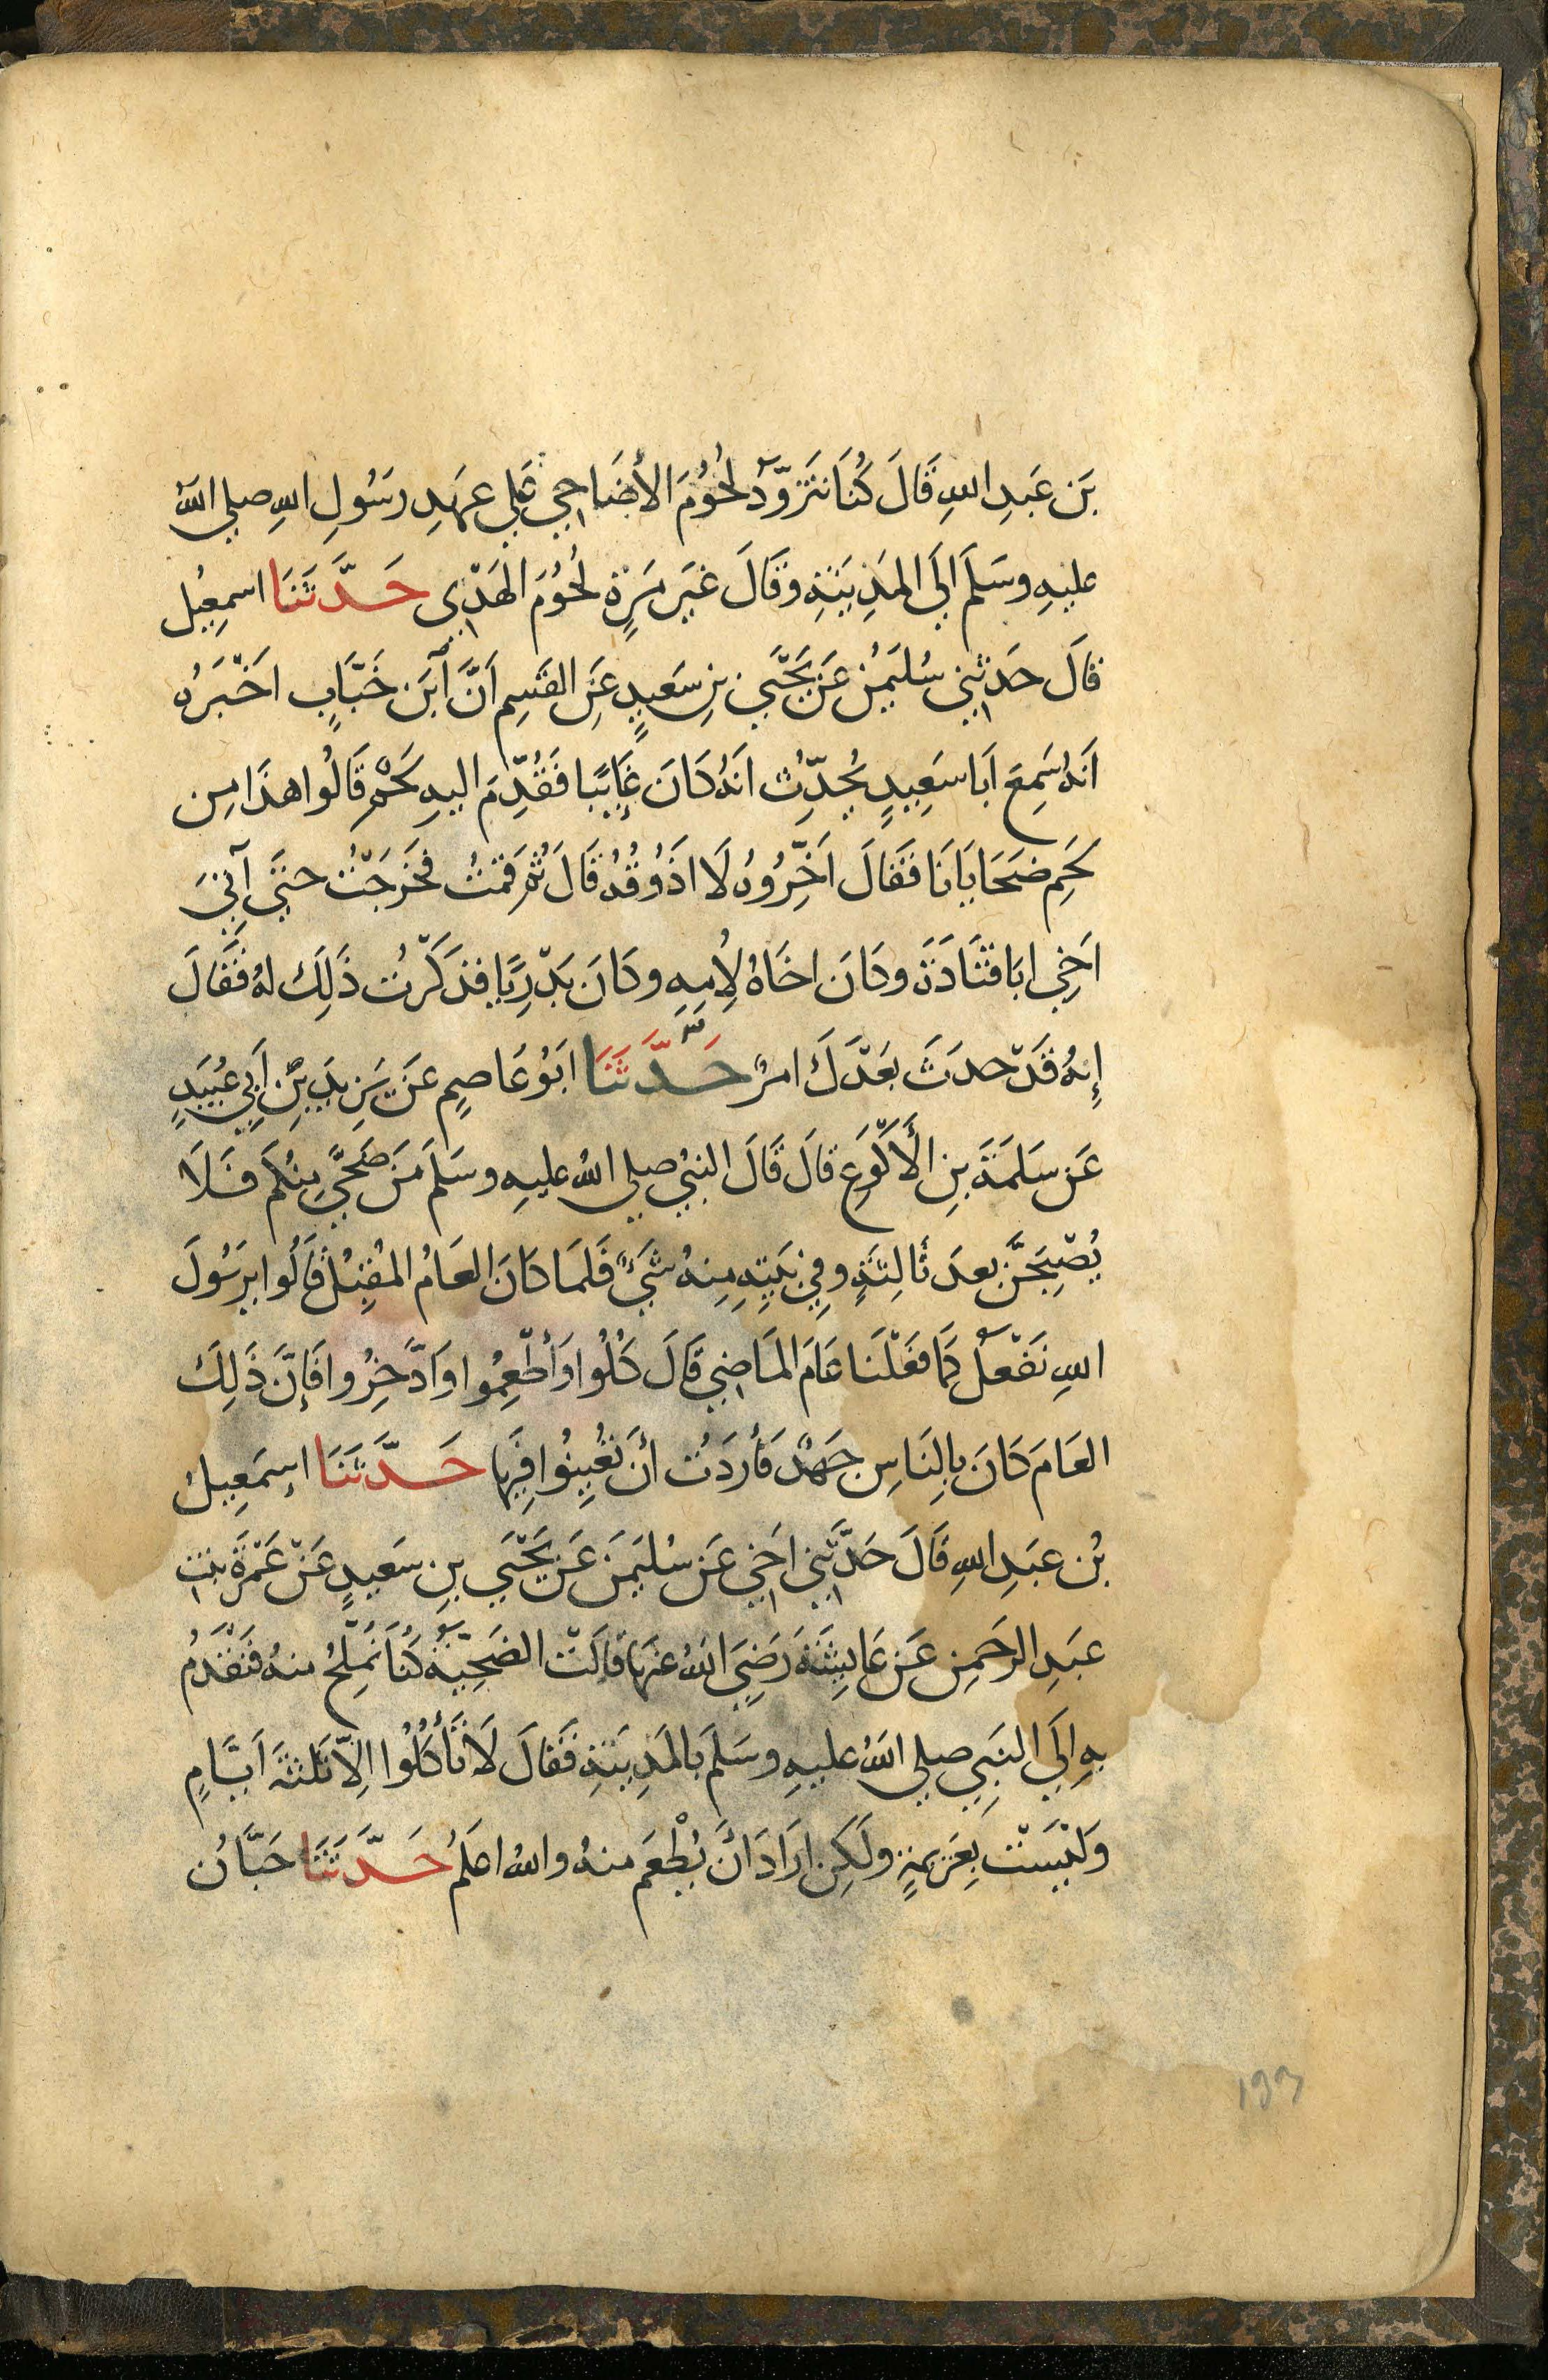 بَن عَبدِ اللهِ قَالَ كُنَا نَتَزَوَّدُ لُحُوُمَ الأضَاحِي عَلي عهَدِ رسَوُلِ اللهِ صلي اللهُ
عليهِ وسَلَمَ الَي المَدِينَةِ وقَالَ غيَر مَرَةٍ لُحُوُمَ الهَدْي حَدَّثَنَا اسمِعِيُل
قالَ حَدثنِي سُليَمٰنُ عَن يَحْيَي بنِ سَعَيدٍ عَنِ القَسِمِ اَنَّ اَبَن خَبَّابٍ اخَبَرَهُ
اَنهُ سَمِعَ اَبَا سَعِيِدٍ يُحِدِّثُ انَهُ كَانَ غَايَبًا فَقُدِّمَ اليهِ لَحْمٌ قَالُوا هذَا مِن
لَحمِ ضَحَايَانَا فَقَالَ اَخِّرُوُهُ لَا اذَوُقُهُ قَالَ ثُم قمَتُ فخَرجَتُ حتيَ آتِيَ
اَخِي ابَا قَتَادَةَ وكَانَ اخَاهُ لِاُمِهِ وكَانَ بَدْرِيًا فذَكَرْتُ ذَلِكَ لهُ فَقَالَ
إِنهُ قَدْ حدثَ بعَدَكَ امرٌ حَدَّثَنَا ابَوُ عَاصِمٍ عنَ يَزِيدَ بِن اَبِي عُبَيَدٍ
عَن سَلَمَةَ بِنِ الأَكَوَعِ قالَ قَالَ النبيُ صلي اللهُ عليهِ وسَلَم مَن ضَحَّيَ مِنكُم فَلَا
يُصْبِحَنَّ بعدَ ثَالِثَةٍ وفِي بَيَتِهِ مِنهُ شَيءٌ فَلمَا كَانَ العَامُ المُقبِلُ قَالُوا يرسَوُلَ
اللهِ نَفْعَلُ كَما فعَلْنَا عَامَ المَاضِي قَالَ كُلُوا وَأطْعِمُوا وَادَّخِرُوا فَإنَّ ذَلِكَ
العَامَ كَانَ بالِنَاسِ جَهدٌ فَأردَتُ أنَ تُعيِنُوا فِيَها حَدَّثَنَا اِسمَعِيل
بُن عبَدِ اللهِ قَالَ حَدَّثَنِي اَخيِ عَن سُليَمَن عَن يَحْيَي بنِ سَعيدٍ عَنْ عَمْرَةَ بنت
عبَدِ الرَحَمِن عَن عَايِشَةَ رَضِيَ اللهُ عنهَا قالَتْ الضَحِيّةُ كُنَا نُمَلِّحُ منهُ فَنَقْدَمُ
بهِ اِلَي النبَيِ صلي اللهُ عليهِ وسَلمَ بالمَدِينَةِ فقَالَ لَا تَأْكُلُوا اِلاَّ ثَلثةَ اَيَّامٍ
وَلَيْسَتْ بعِزيمَةٍ ولَكِن ارَادَ اَنْ يُطْعَمَ منهُ واللهُ اعلَمُ حَدَّثَنَا حَبَّانُ
193